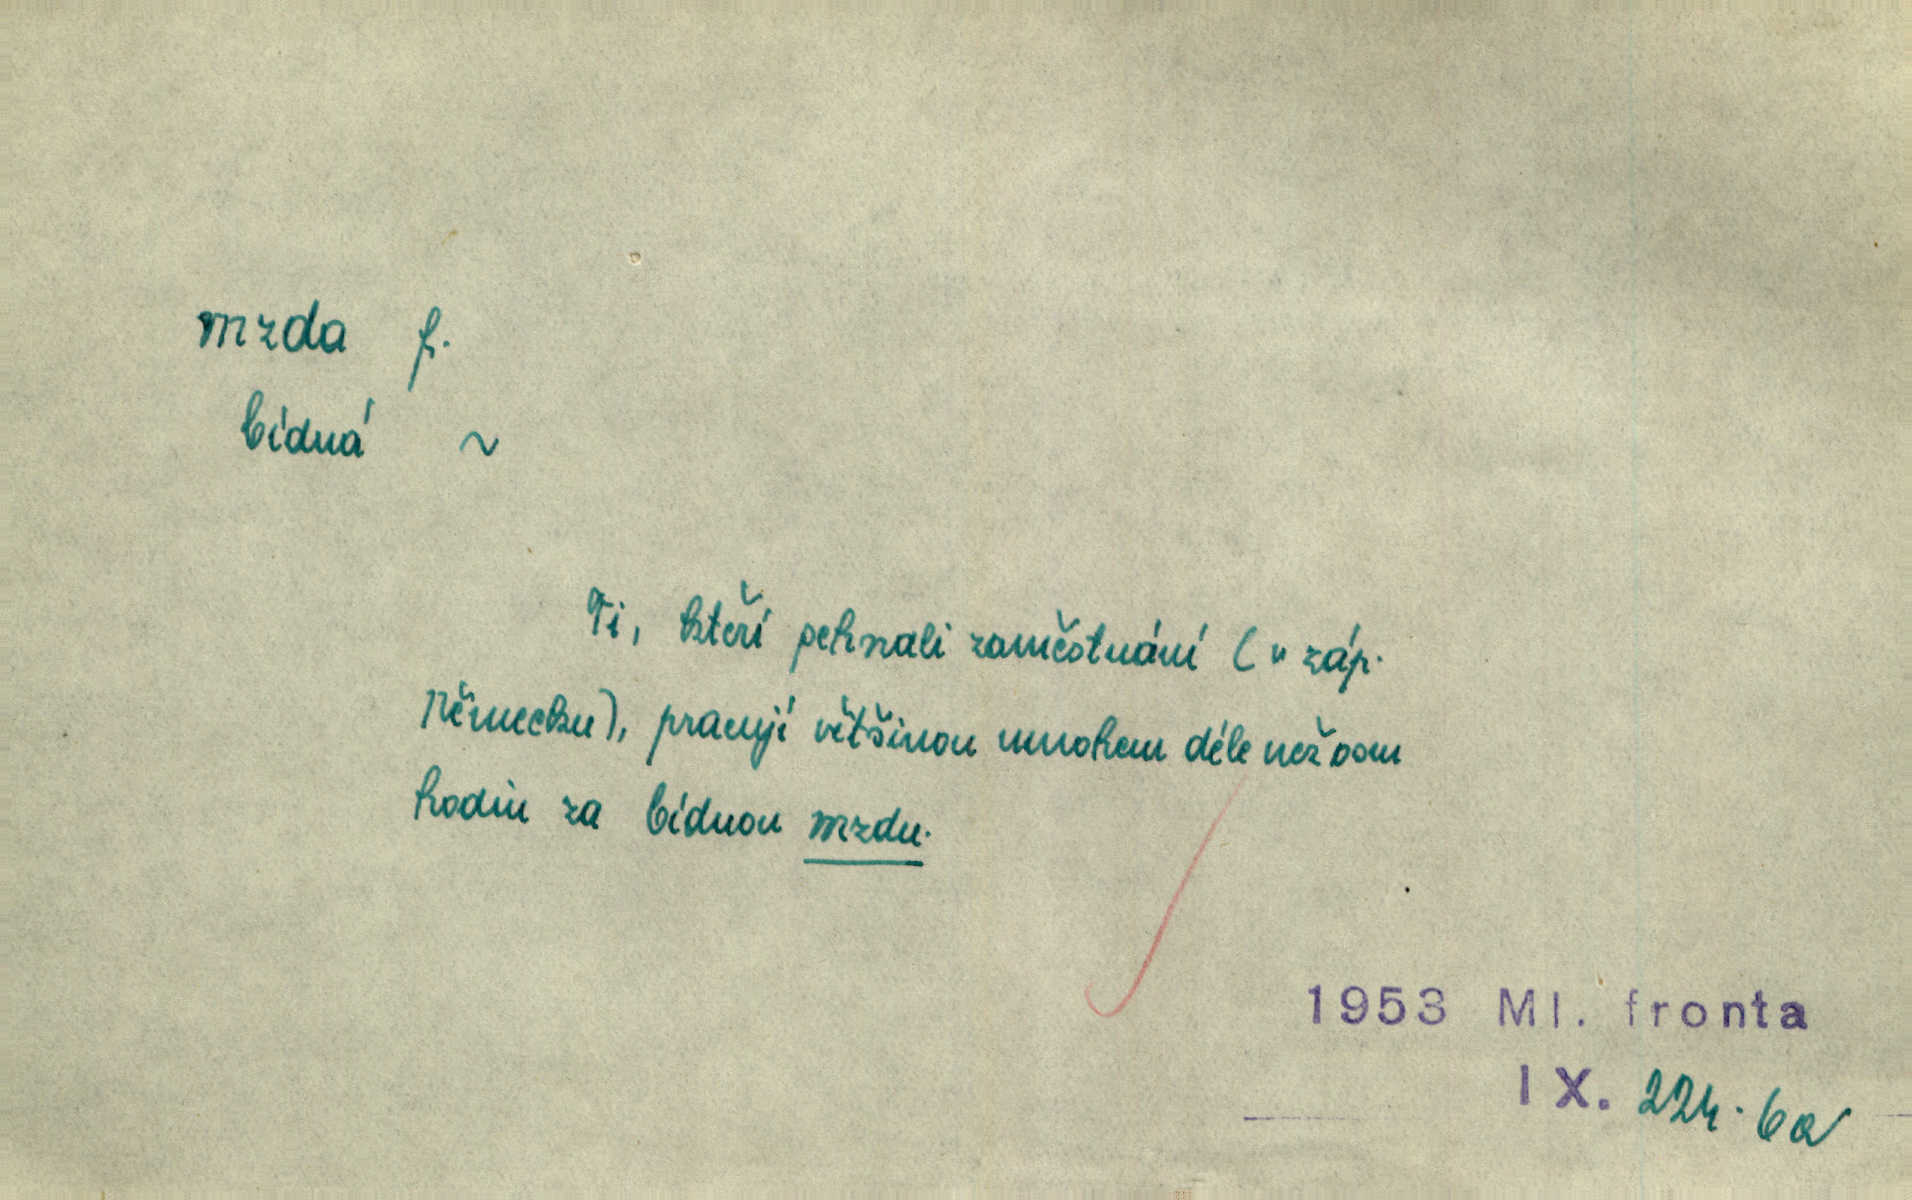 mzda f.
bídná ~
Ti, kteří sehnali zaměstnání (v záp.
Německu), pracují většinou mnohem déle než osm
hodin za bídnou mzdu.
1953 Ml. fronta
IX. 224. 6a